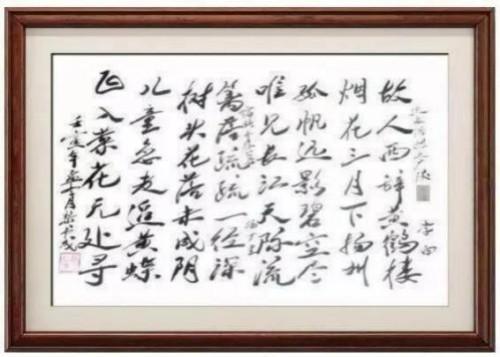 李白
故人西辞黄鹤楼
烟花三月下扬州
孤帆远影碧空尽
唯见长江天际流
宿新市徐公店
篱落疏疏一径深
树头花落未成阴
儿童急走追黄蝶
飞入菜花无处寻
壬寅年